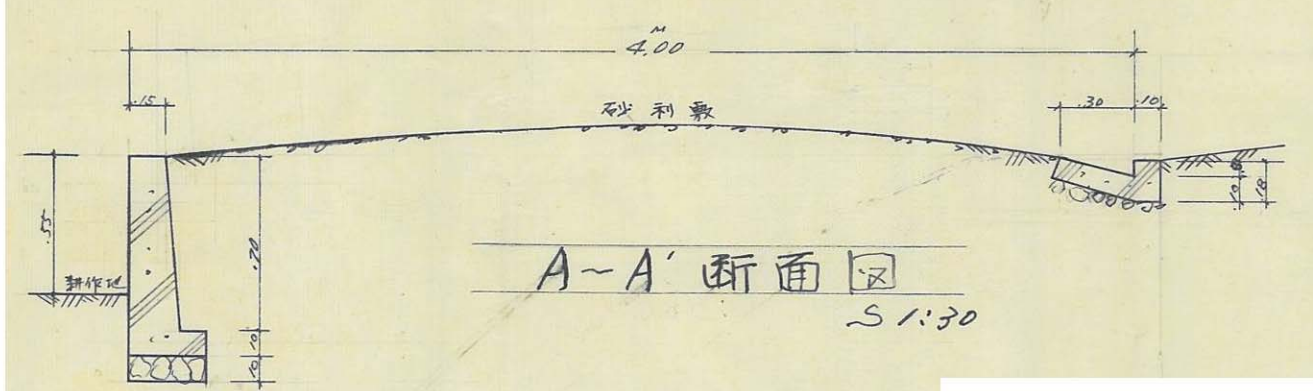 M
4.00
.15
砂利敷
.30
.10
.55
.70
耕作地
.10
.10
.10
.18
A~A' 断面図
S 1:30